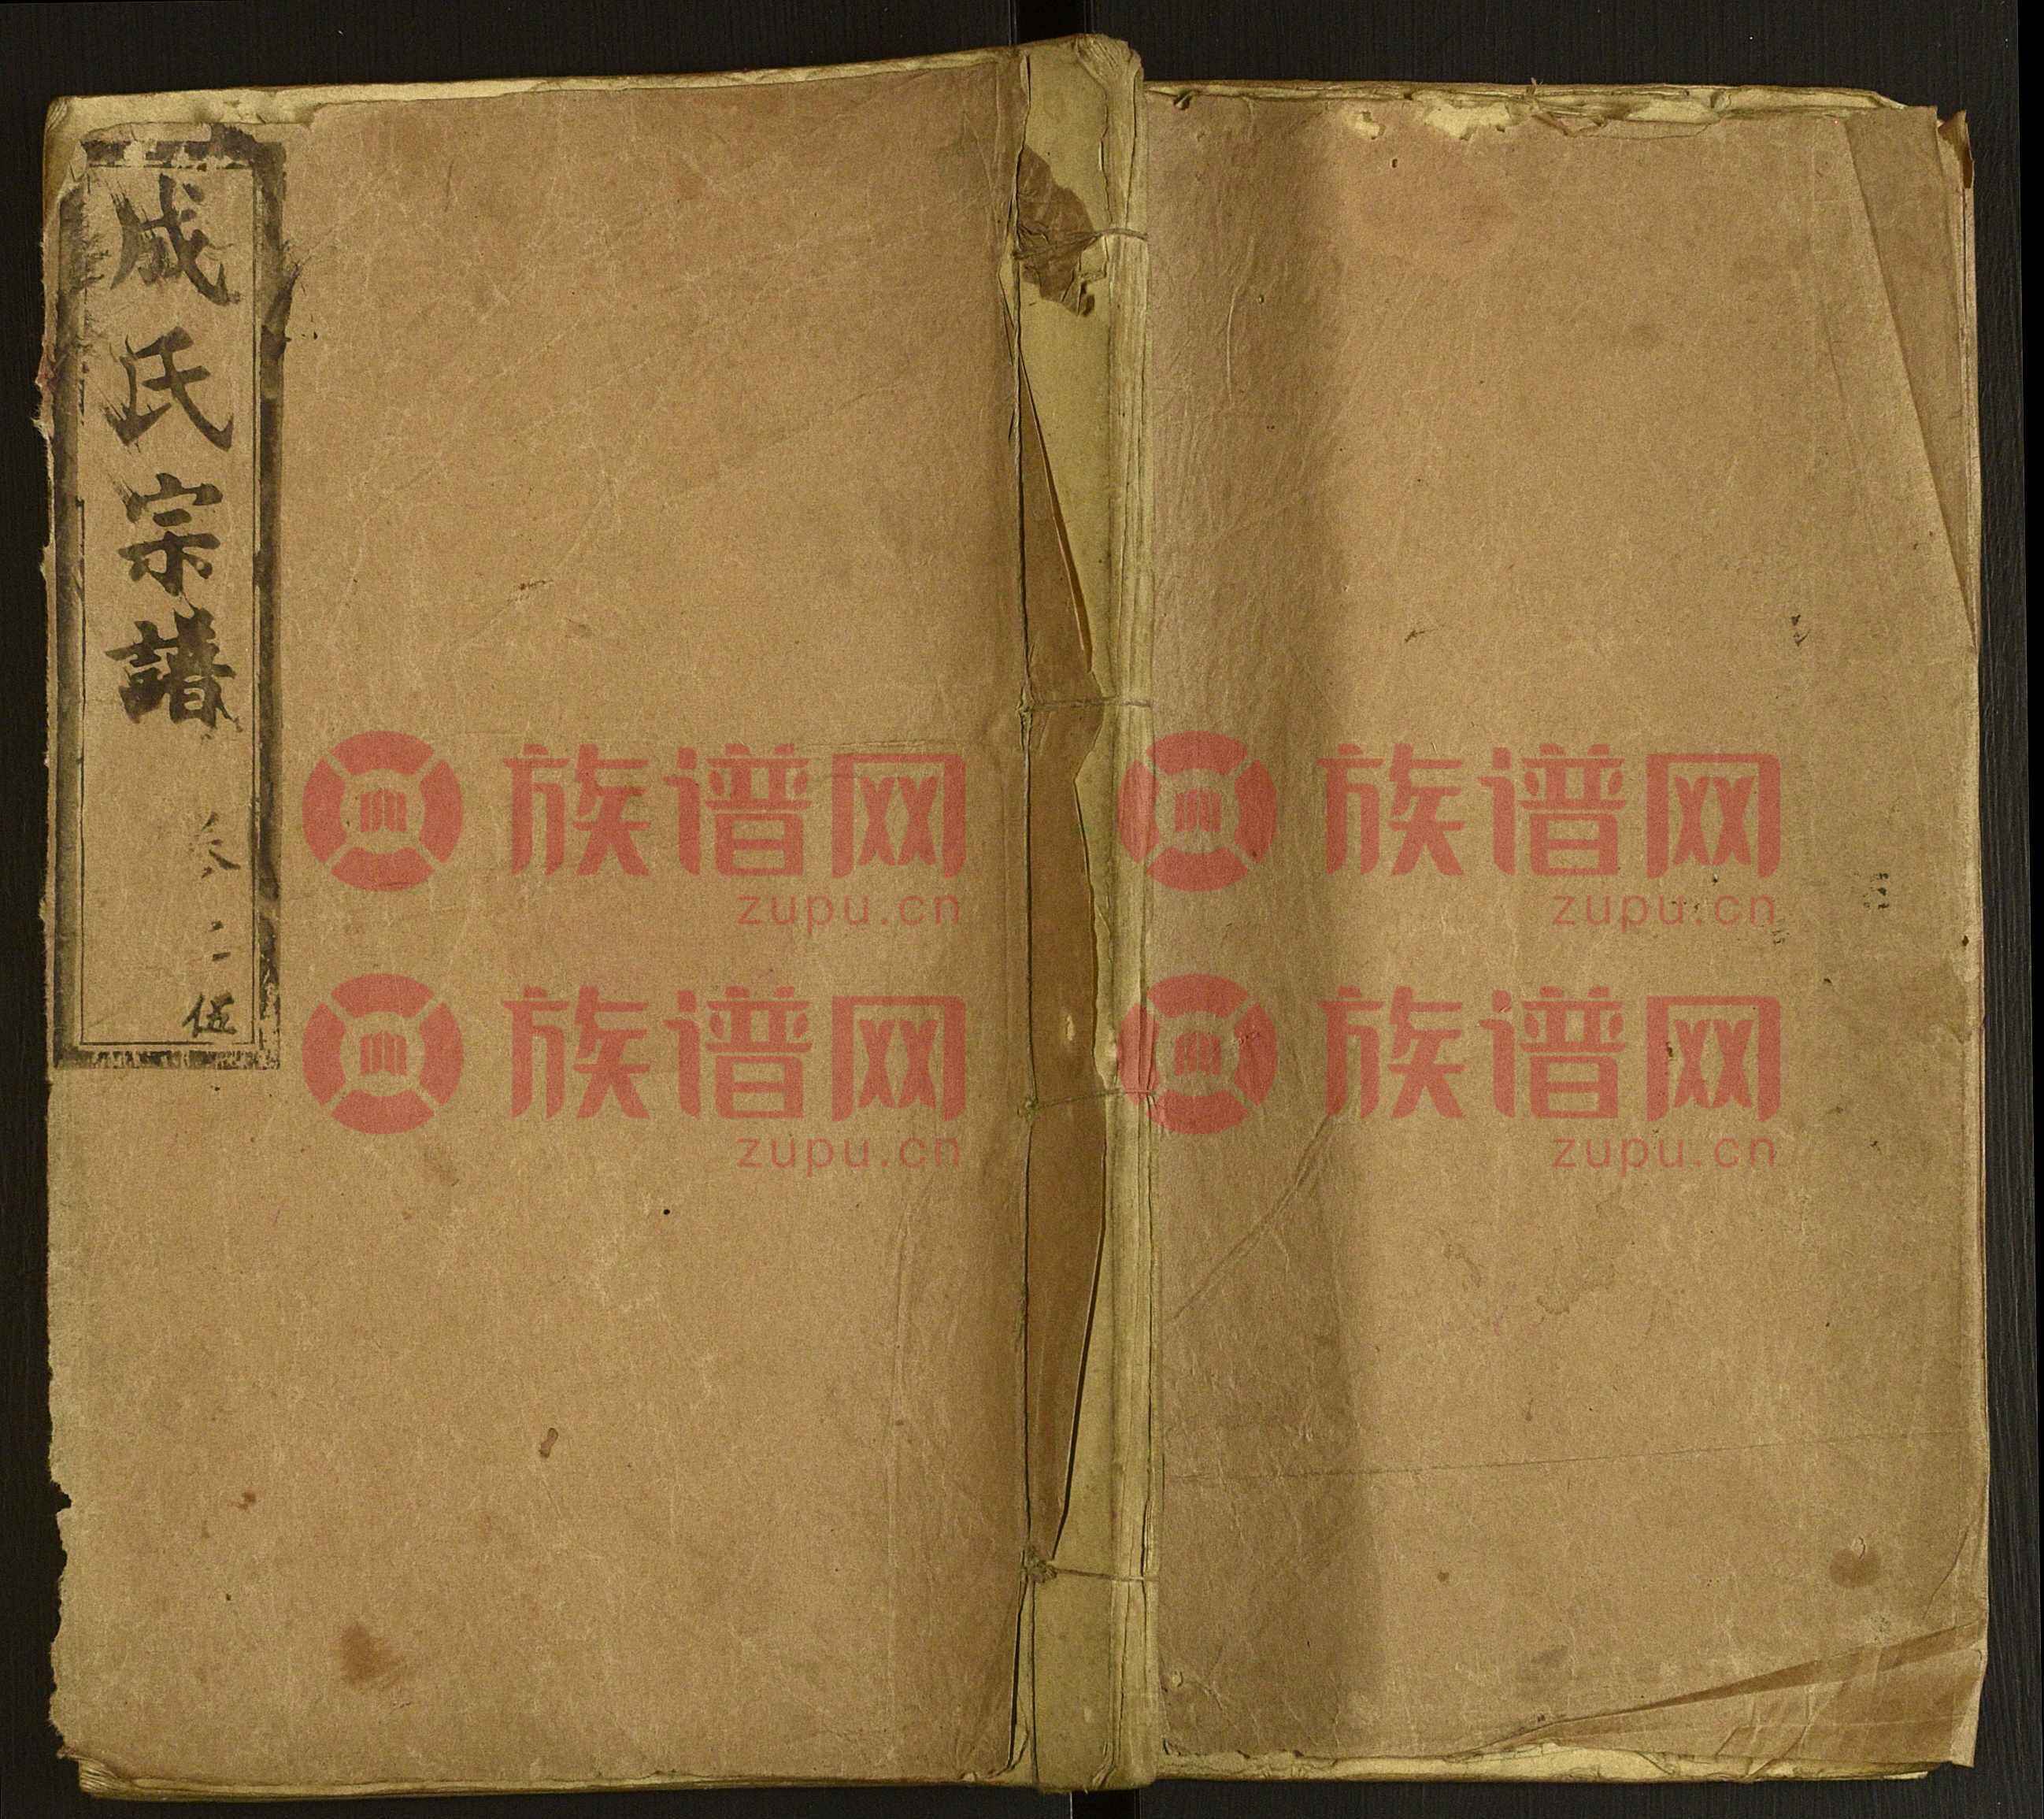 成氏宗譜
卷二伍
族谱网
zupu.cn
族谱网
zupu.cn
族谱网
zupu.cn
族谱网
zupu.cn